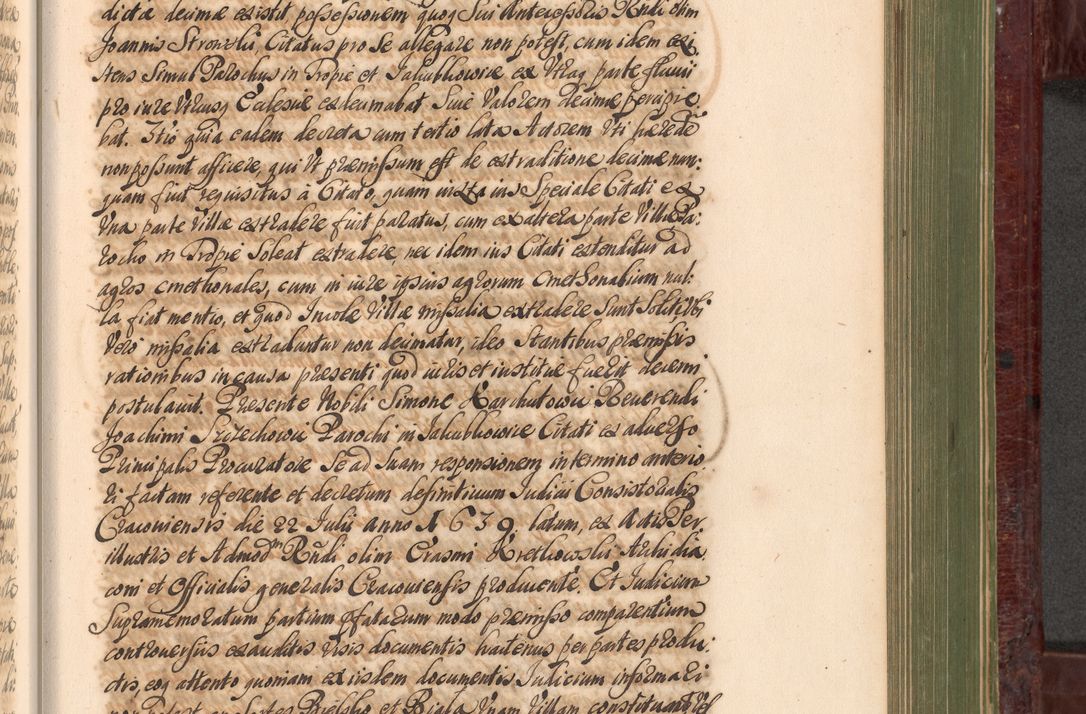 dictæ decimæ existit, possessionem quoq Sui Antecessoris Rndi olim
Joannis Stronski, Citatus pro se allegare non potest, cum idem exi
stens Simul Parochus in Propie et Jakubkowice ex utraq parte fluvii
pro iure utriusq Ecclesiæ exleumabat Suæ Valorem decimæ percipie
bat. Itio quia eadem decreta cum tertio lata Actorem uti hærede
non possunt afficere, qui ut præmissum est de extraditione decimæ nun:
quam fuit requisitus à Citato, quam iuxta ius Speciale Citati ex
Una parte Villæ extradere fuit paratus, cum ex altera parte Villæ Pa:
rocho in Propie Soleat extradere, nec idem ius Citati extenditur ad
agros cmethonales, cum in iure ipsius agrorum Cmethonalium nul:
la fiat mentio, et quod Incolæ Villæ missalia extradere Sunt Soliti, ubi
Vero missalia extraduntur non decimatur, ideo Stantibus præmissis
rationibus in causa presenti quod iuris et institiæ fuerit decerni
postulavit. Presente Nobili Simone Karchutowic Reverendi
Joachimi Szczechowic Parochi in Jakubkowice Citati ex adverso
Principalis Procuratore Se ad Suam responsionem in termino anterio
ri factam referente et decretum definitivum Judicii Consistorialis
Cracoviensis die 22 Julii anno 1639. latum, ex Actis Per
illustris et Admod Rndi olim Erasmi Kretkowski Archidia
coni et Officialis generalis Cracoviensis producente. Et Judicium
Supramemoratum partium pfatarum modo præmisso comparentium
controversiis exauditis visis documentis hactenus per partes produ:
ctis, eoq attento quoniam ex iisdem documentis Judicium informari
non potest, an Sortes Bielsko et Biala Unam Villam constituant vel